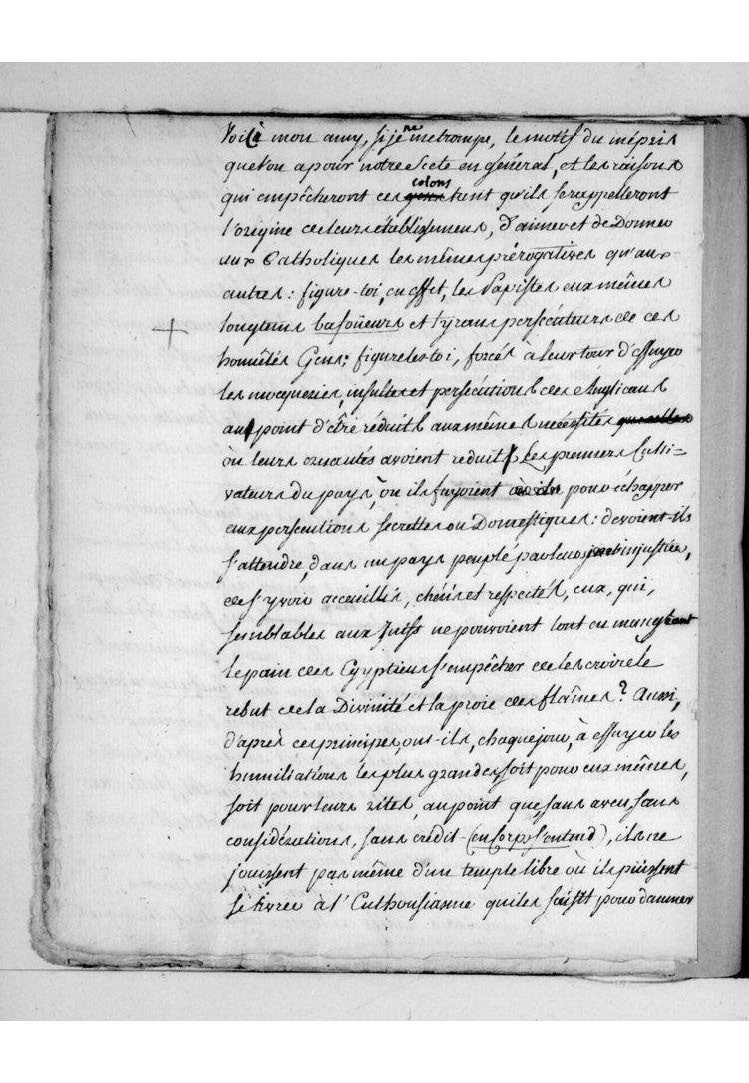 Voilà mon amy, si je ne me trompe, le motif du mépris
que l'on a pour notre Secte en général, et les raisons
qui empêcheront ces colons tant qu'ils se rappelleront
l'origine de leurs établissemens, d'aimer et de Donner
aux Catholiques les mêmes prérogatives qu'aux
autres : figure-toi, en effet, les Papistes eux mêmes
longtems bafoüeurs et tyrans persécuteurs de ces
honnêtes Gens; figure les toi, forcés a leur tour d'essuyer
les mocqueries, insultes et persécutions des Anglicans
au point d'être réduits aux mêmes nécessités
où leurs cruautés avoient reduit Les premiers Culti=
vateurs du pays, où ils fuyoient pour échapper
aux persecutions secrettes ou Domestiques : devoient-ils
s'attendre, dans un pays peuplé par leurs injustices,
de s'y voir acceuillis, chéris et respectés, eux, qui,
semblables aux Juifs ne pouvoient tout en mangeant
le pain des Egyptiens s'empêcher de les croire le
rebut de la Divinité et la proie des flâmes ? Aussi,
d'après ces principes, ont-ils, chaque jour, à essuyer les
humiliations les plus grandes soit pour eux mêmes,
soit pour leurs rites, au point que sans aveu, sans
considérations, sans crédit (en Corps s'entend), ils ne
jouissent pas même d'un temple libre où ils puissent
se livrer à l'Enthousiasme qui les saisit pour damner